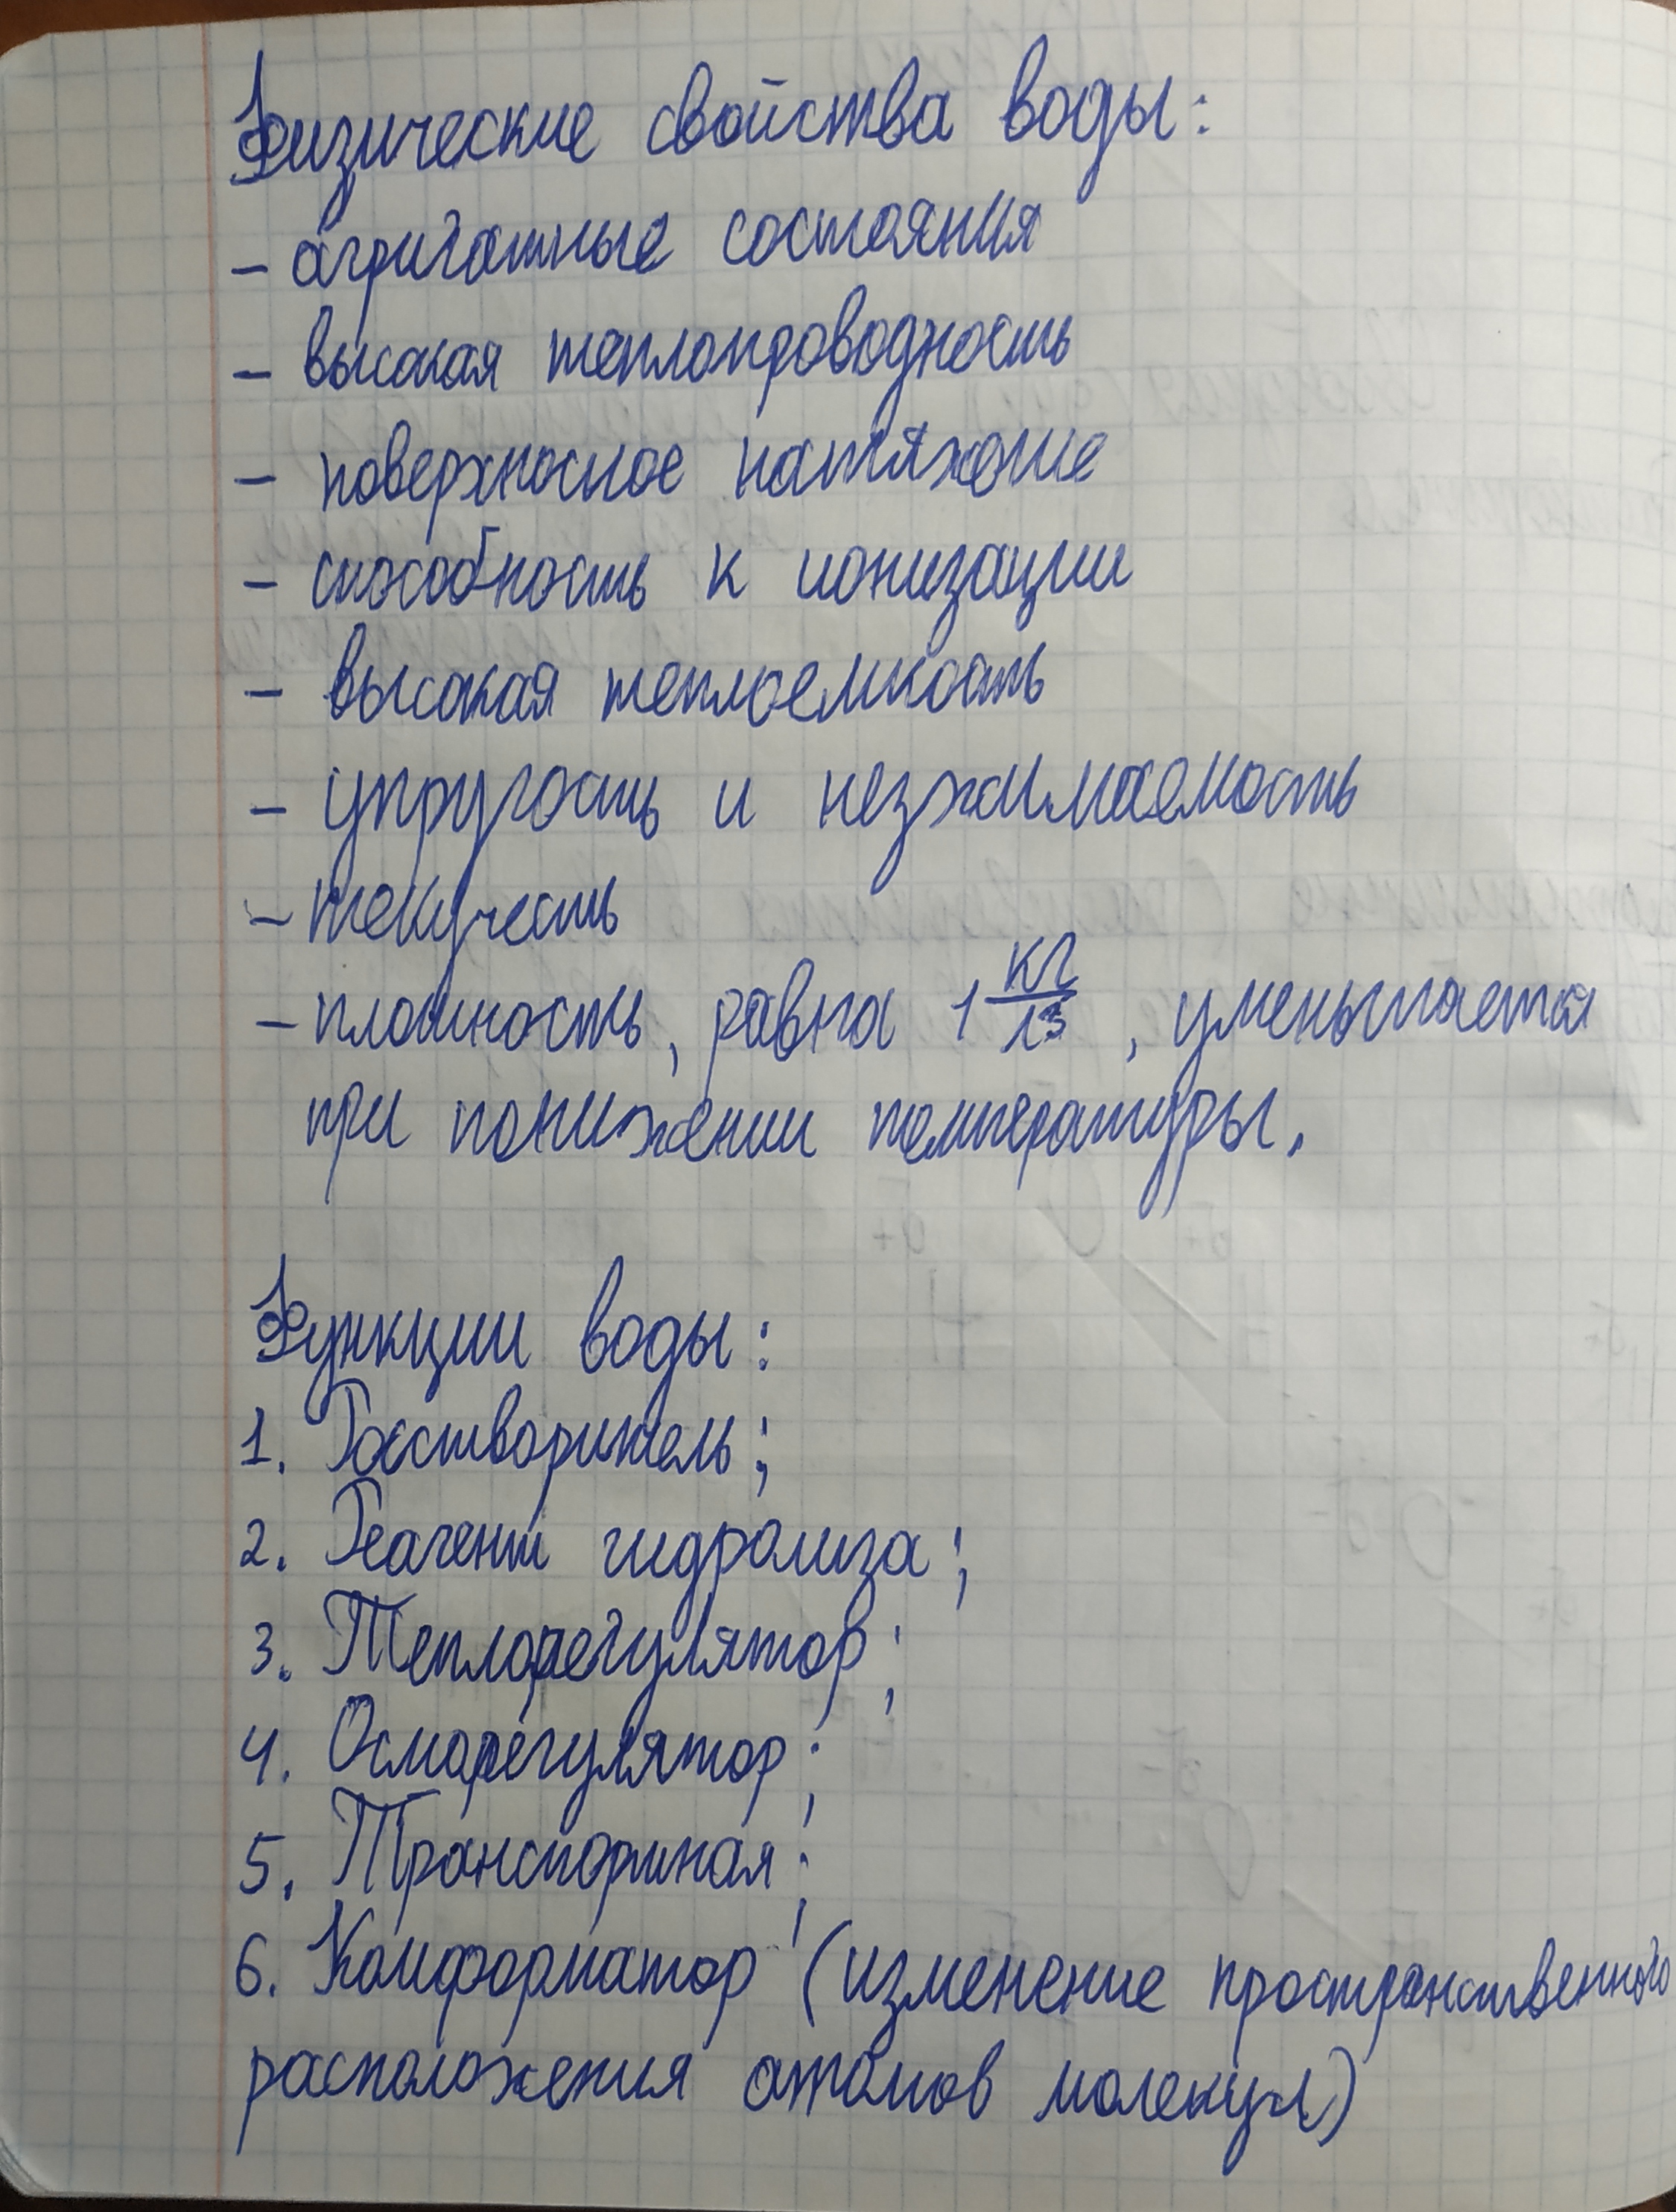 Физические свойства воды:
- агригатные состояния
- высокая теплопроводность
- поверхносное натяжение
- способность к ионизации
- высокая теплоемкость
- упругость и незжимаемость
- текучесть
- плотность, равна 1 кг/л³, уменьшается
при понижении температуры.
Функции воды:
1. Растворитель;
2. Реагент гидролиза;
3. Теплорегулятор;
4. Осморегулятор;
5. Транспортная;
6. Конформатор (изменение пространственного
расположения атомов молекул)